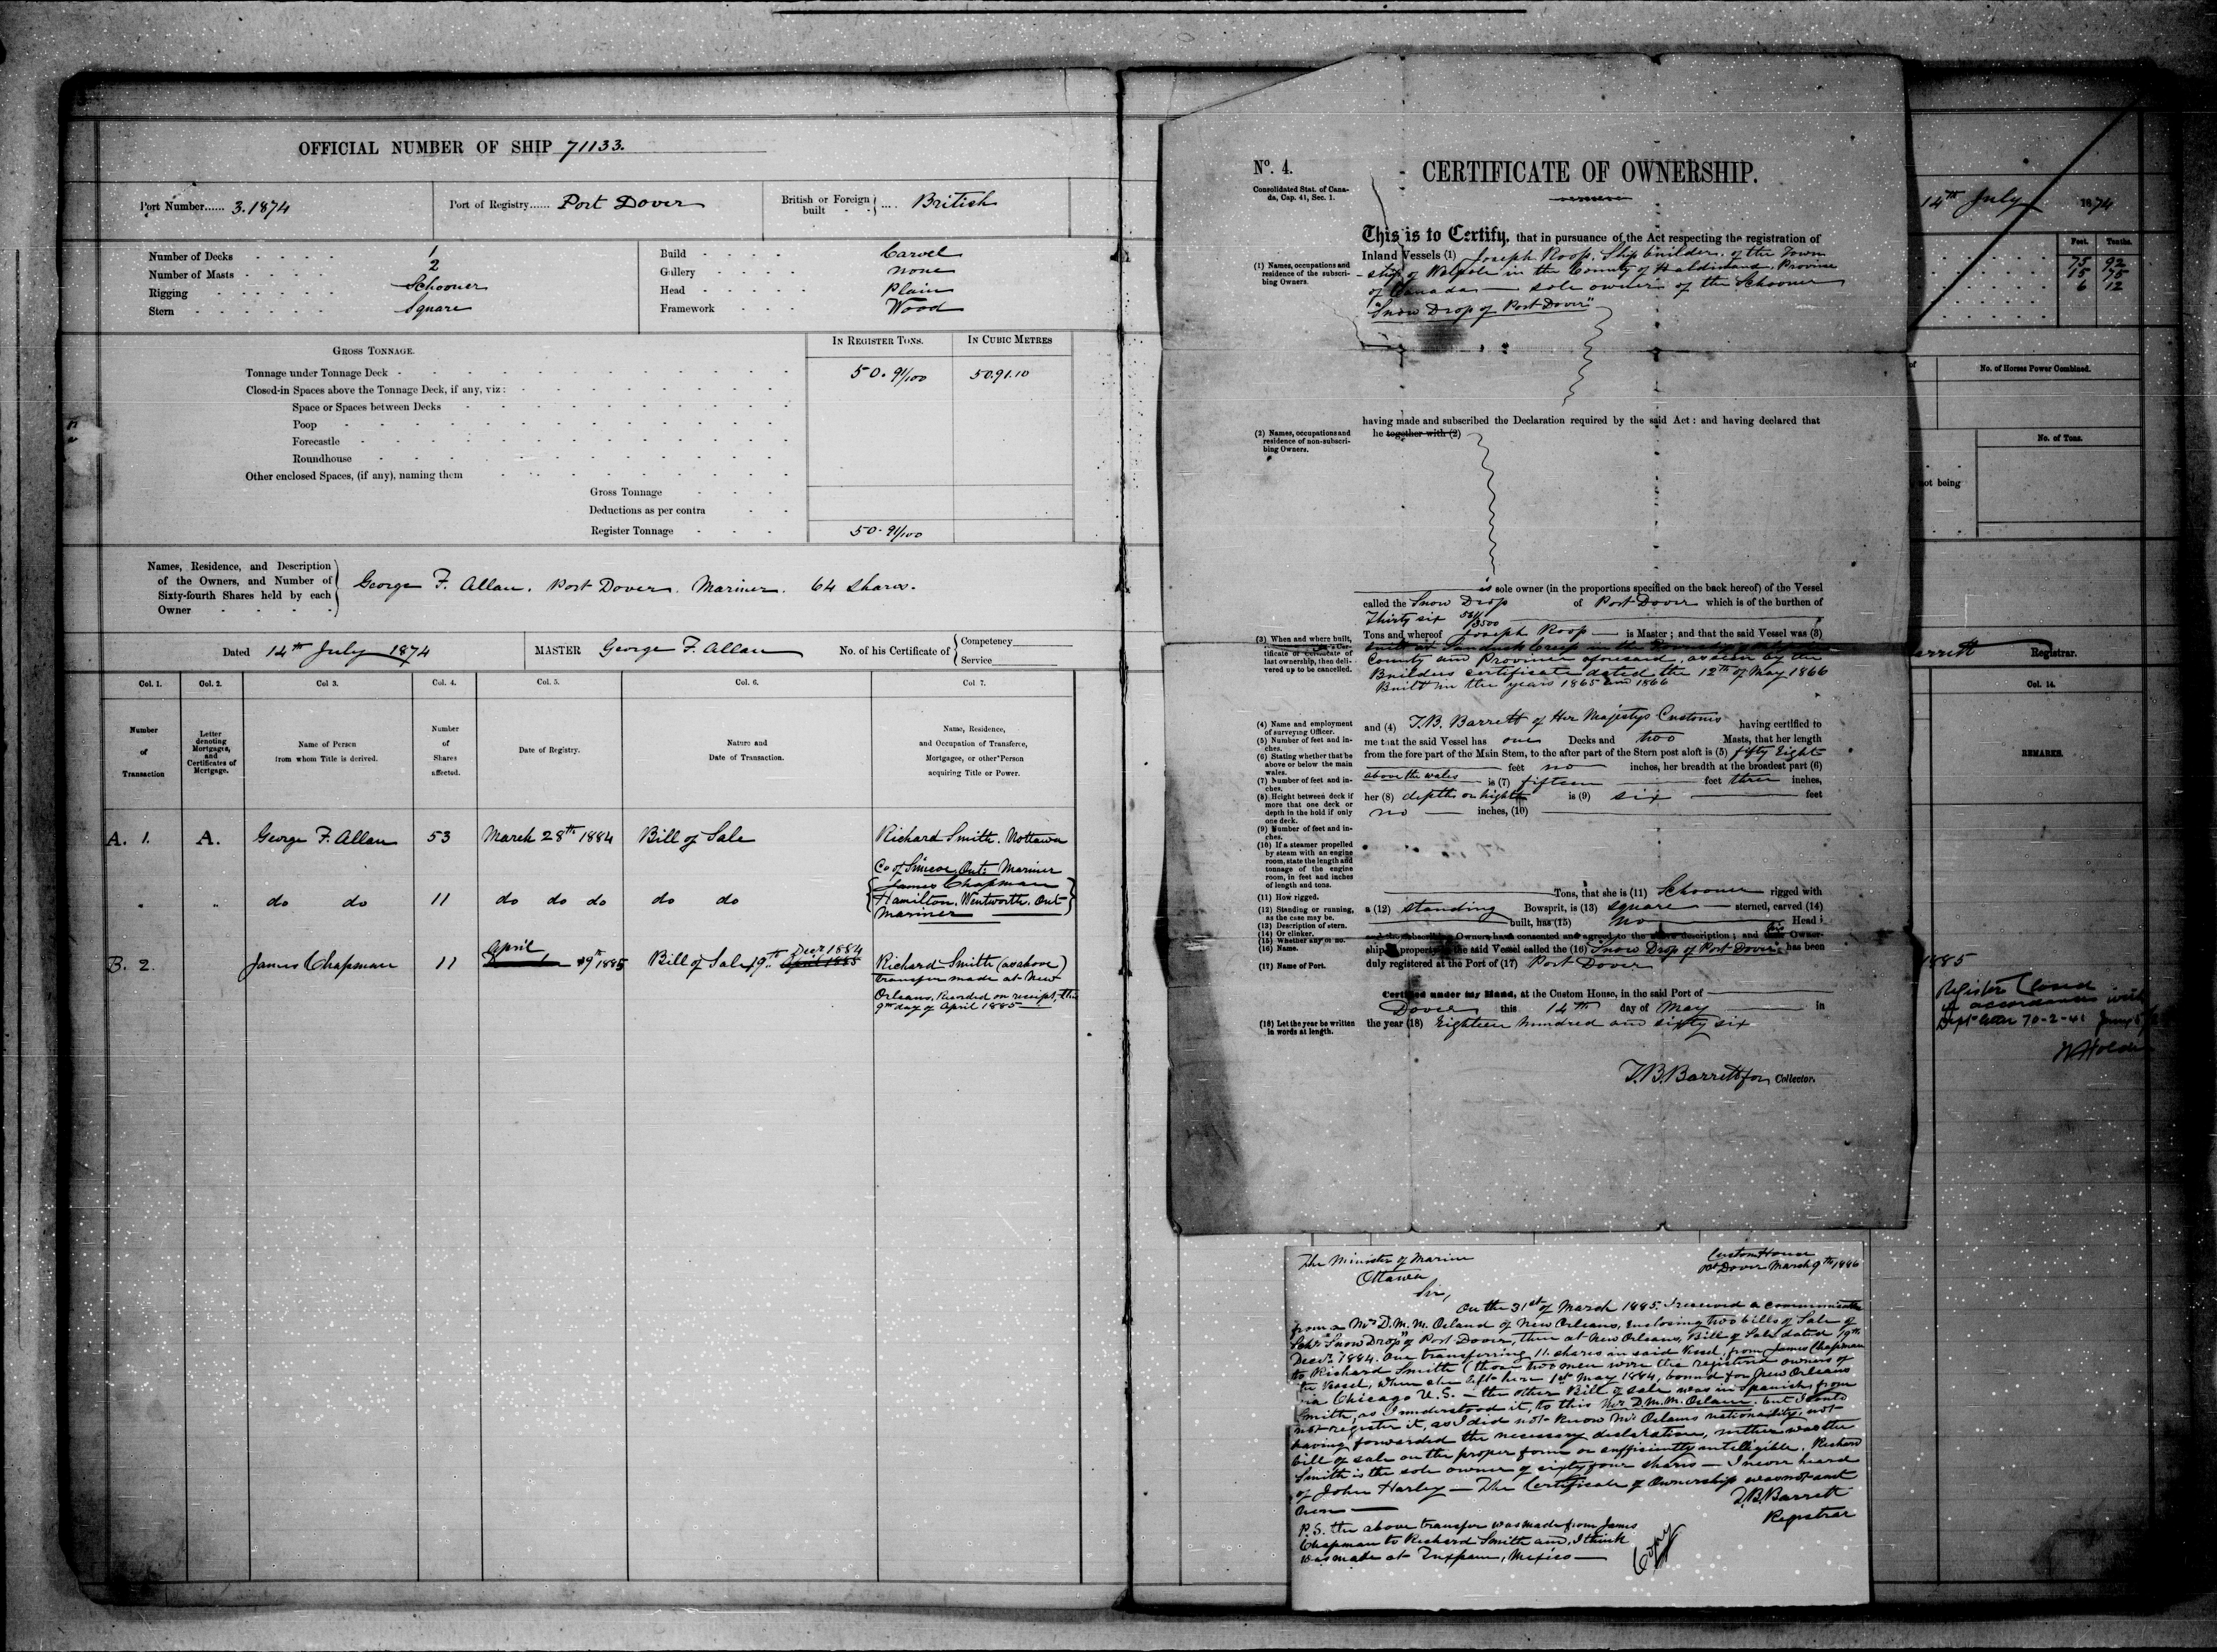 OFFICIAL NUMBER OF SHIP 71133.
Port Number...... 3.1874
Port of Registry...... Port Dover
British or Foreign built .... British
Number of Decks 1
Number of Masts 2
Rigging Schooner
Stern Square
Build Carvel
Gallery none
Head Plain
Framework Wood
GROSS TONNAGE.
IN REGISTER TONS.
IN CUBIC METRES
Tonnage under Tonnage Deck 50.91/100 50.91.10
Closed-in Spaces above the Tonnage Deck, if any, viz:
Space or Spaces between Decks
Poop
Forecastle
Roundhouse
Other enclosed Spaces, (if any), naming them
Gross Tonnage
Deductions as per contra
Register Tonnage 50.91/100
Names, Residence, and Description
of the Owners, and Number of
Sixty-fourth Shares held by each
Owner
George F. Allan. Port Dover. Mariner. 64 shares.
Dated 14th July 1874
MASTER George F. Allan
No. of his Certificate of { Competency
Service
Col. 1. Col. 2. Col 3. Col. 4. Col. 5. Col. 6. Col 7.
Number of Transaction
Letter denoting Mortgages, and Certificates of Mortgage.
Name of Person from whom Title is derived.
Number of Shares affected.
Date of Registry.
Nature and Date of Transaction.
Name, Residence, and Occupation of Transferee, Mortgagee, or other Person acquiring Title or Power.
A. 1. A. George F. Allan 53 March 28th 1884 Bill of Sale Richard Smith. Nottawa
Co of Simcoe, Ont: Mariner
" " do do 11 do do do do do James Chapman
Hamilton. Wentworth. Ont
Mariner
B. 2. James Chapman 11 April 9th 1885 Bill of Sale 19th Decr 1884 April 1885 Richard Smith (as above)
transfer made at New
Orleans, Recorded on receipt, this
9th day of April 1885
No. 4.
CERTIFICATE OF OWNERSHIP.
Consolidated Stat. of Cana-
da, Cap. 41, Sec. 1.
This is to Certify, that in pursuance of the Act respecting the registration of
Inland Vessels (1) Joseph Roop, Ship builder, of the Town
(1) Names, occupations and
residence of the subscri-
bing Owners.
ship of Walpole in the County of Haldimand, Province
of Canada — sole owner of the Schooner
"Snow Drop of Port Dover"
having made and subscribed the Declaration required by the said Act: and having declared that
he together with (2)
(2) Names, occupations and
residence of non-subscri-
bing Owners.
is sole owner (in the proportions specified on the back hereof) of the Vessel
called the Snow Drop of Port Dover which is of the burthen of
Thirty six
Tons and whereof Joseph Roop — is Master; and that the said Vessel was (3)
(3) When and where built,
last ownership, then deli-
vered up to be cancelled.
built at Sandusk Creek in the Township of Walpole
County and Province aforesaid, as seen by the
Builders certificate dated the 12th of May 1866
Built in the years 1865 and 1866
and (4) T.B. Barrett of Her Majestys Customs having certified to
(4) Name and employment
of surveying Officer.
me that the said Vessel has one Decks and two Masts, that her length
(5) Number of feet and in-
ches.
from the fore part of the Main Stem, to the after part of the Stern post aloft is (5) fifty Eight
(6) Stating whether that be
above or below the main
wales.
feet no inches, her breadth at the broadest part (6)
above the wales is (7) fifteen feet three inches,
(7) Number of feet and in-
ches.
her (8) depth or highth is (9) six feet
(8) Height between deck if
more that one deck or
depth in the hold if only
one deck.
no inches, (10)
(9) Number of feet and in-
ches.
(10) If a steamer propelled
by steam with an engine
room, state the length and
tonnage of the engine
room, in feet and inches
of length and tons.
Tons, that she is (11) Schooner rigged with
(11) How rigged.
a (12) standing Bowsprit, is (13) square sterned, carved (14)
(12) Standing or running,
as the case may be.
(13) Description of stern.
(14) Or clinker.
(15) Whether any or no.
(16) Name.
built, has (15) no Head;
and the subscribing Owners have consented and agreed to the above description; and his Owner-
ship & property the said Vessel called the (16) Snow Drop of Port Dover has been
duly registered at the Port of (17) Port Dover
(17) Name of Port.
Certified under my Hand, at the Custom House, in the said Port of
Dover this 14th day of May in
the year (18) Eighteen hundred and sixty six
(18) Let the year be written
in words at length.
T.B. Barrett for Collector.
14th July 1874
Feet. Tenths.
75 92
15 75
6 12
No. of Horses Power Combined.
No. of Tons.
not being
Registrar.
Col. 14.
REMARKS.
1885
Register Closed
in accordance with
The Minister of Marine
Ottawa
Custom House
Pt Dover March 9th 1886
Sir,
On the 31st of March 1885, I received a communication
from a Mr D.M.M. Orland of New Orleans, enclosing two bills of Sale of
Schr "Snow Drop" of Port Dover, then at New Orleans, Bill of Sale dated 19th
Decr 1884. One transferring 11 shares in said Vessel, from James Chapman
to Richard Smith (those two men were the registered owners of
the Vessel, when she left here 1st May 1884, bound for New Orleans
via Chicago U.S. — the other Bill of sale was in Spanish, from
Smith, as I understood it, to this Mr D.M.M. but I could
not register it, as I did not know nationality, not
having forwarded the necessary declaration, neither was the
bill of sale on the proper form or sufficiently intelligible. Richard
Smith is the sole owner of sixty four shares — I never heard
of John Harley — The Certificate of Ownership was not sent
here —
T.B. Barrett
Registrar
P.S. the above transfer was made from James
Chapman to Richard Smith and, I think
was made at Tuxpam, Mexico —
Copy